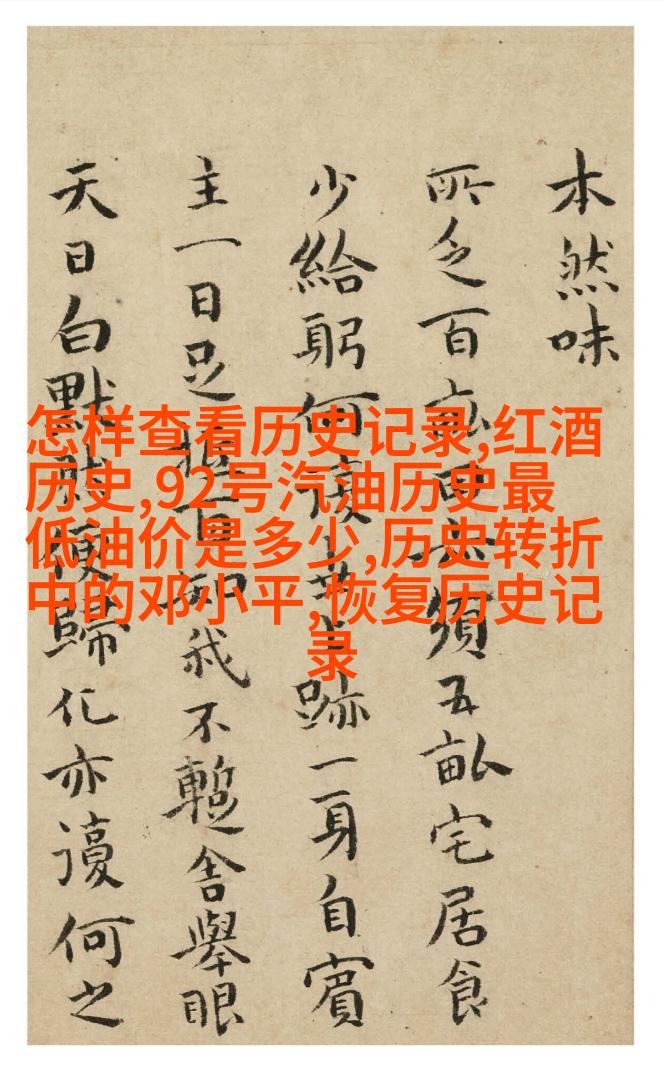 本然味
所乏百畝須五畝宅居食
少給躬何跡一身自賓
主一日我不暫舍舉眼
天日白默歸化亦何之
怎样查看历史记录,红酒
历史,92号汽油历史最
低油价是多少,历史转折
中的邓小平,恢复历史记
录